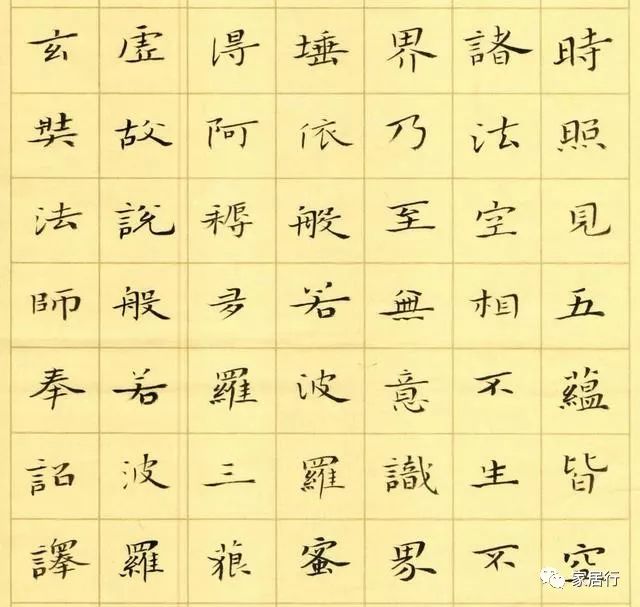 時照見五蘊皆空
諸法空相不生不
界乃至無意識界
埵依般若波羅蜜
得阿耨多羅三藐
虛故說般若波羅
玄奘法師奉詔譯
家居行